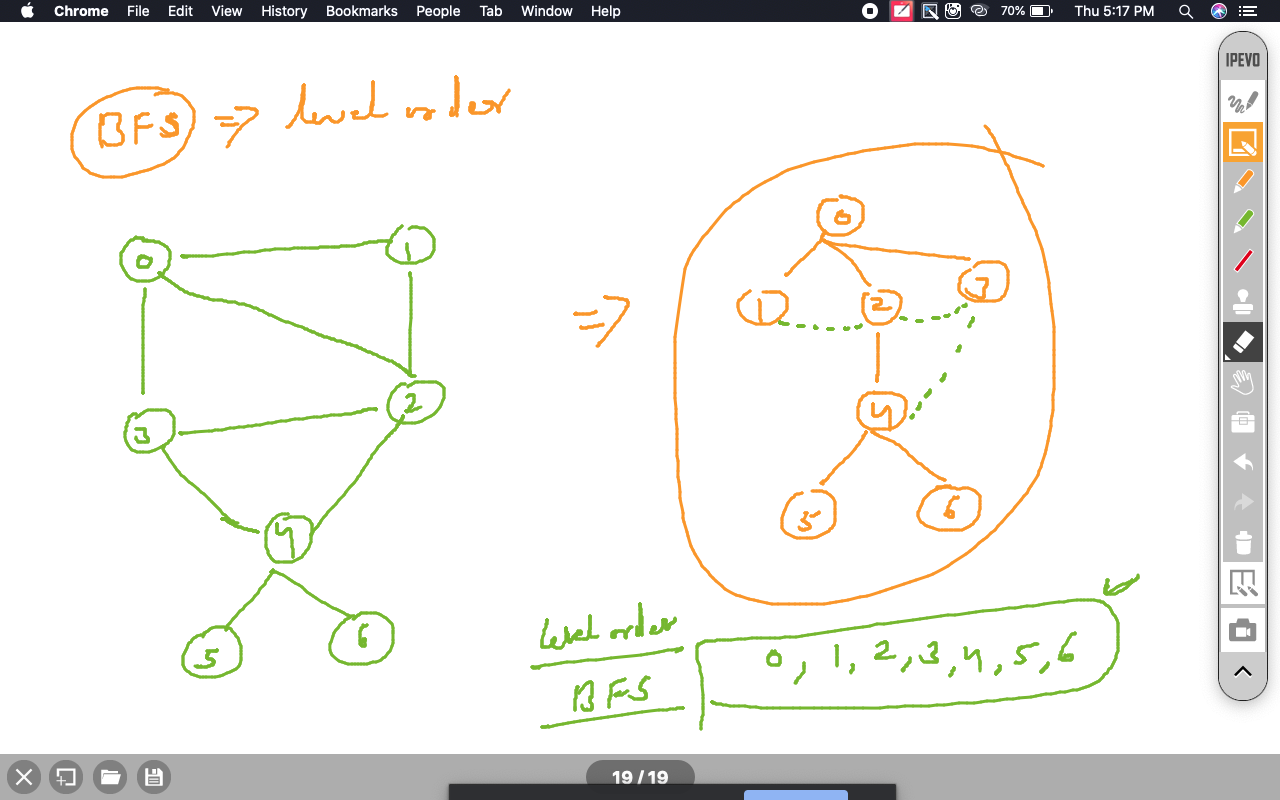 Chrome File Edit View History Bookmarks People Tab Window Help 70% Thu 5:17 PM
IPEVO
BFS => level order
0 1
0
1 2 3
=>
3 2
4
4
5 6
5 6
level order
BFS
0, 1, 2, 3, 4, 5, 6
19 / 19